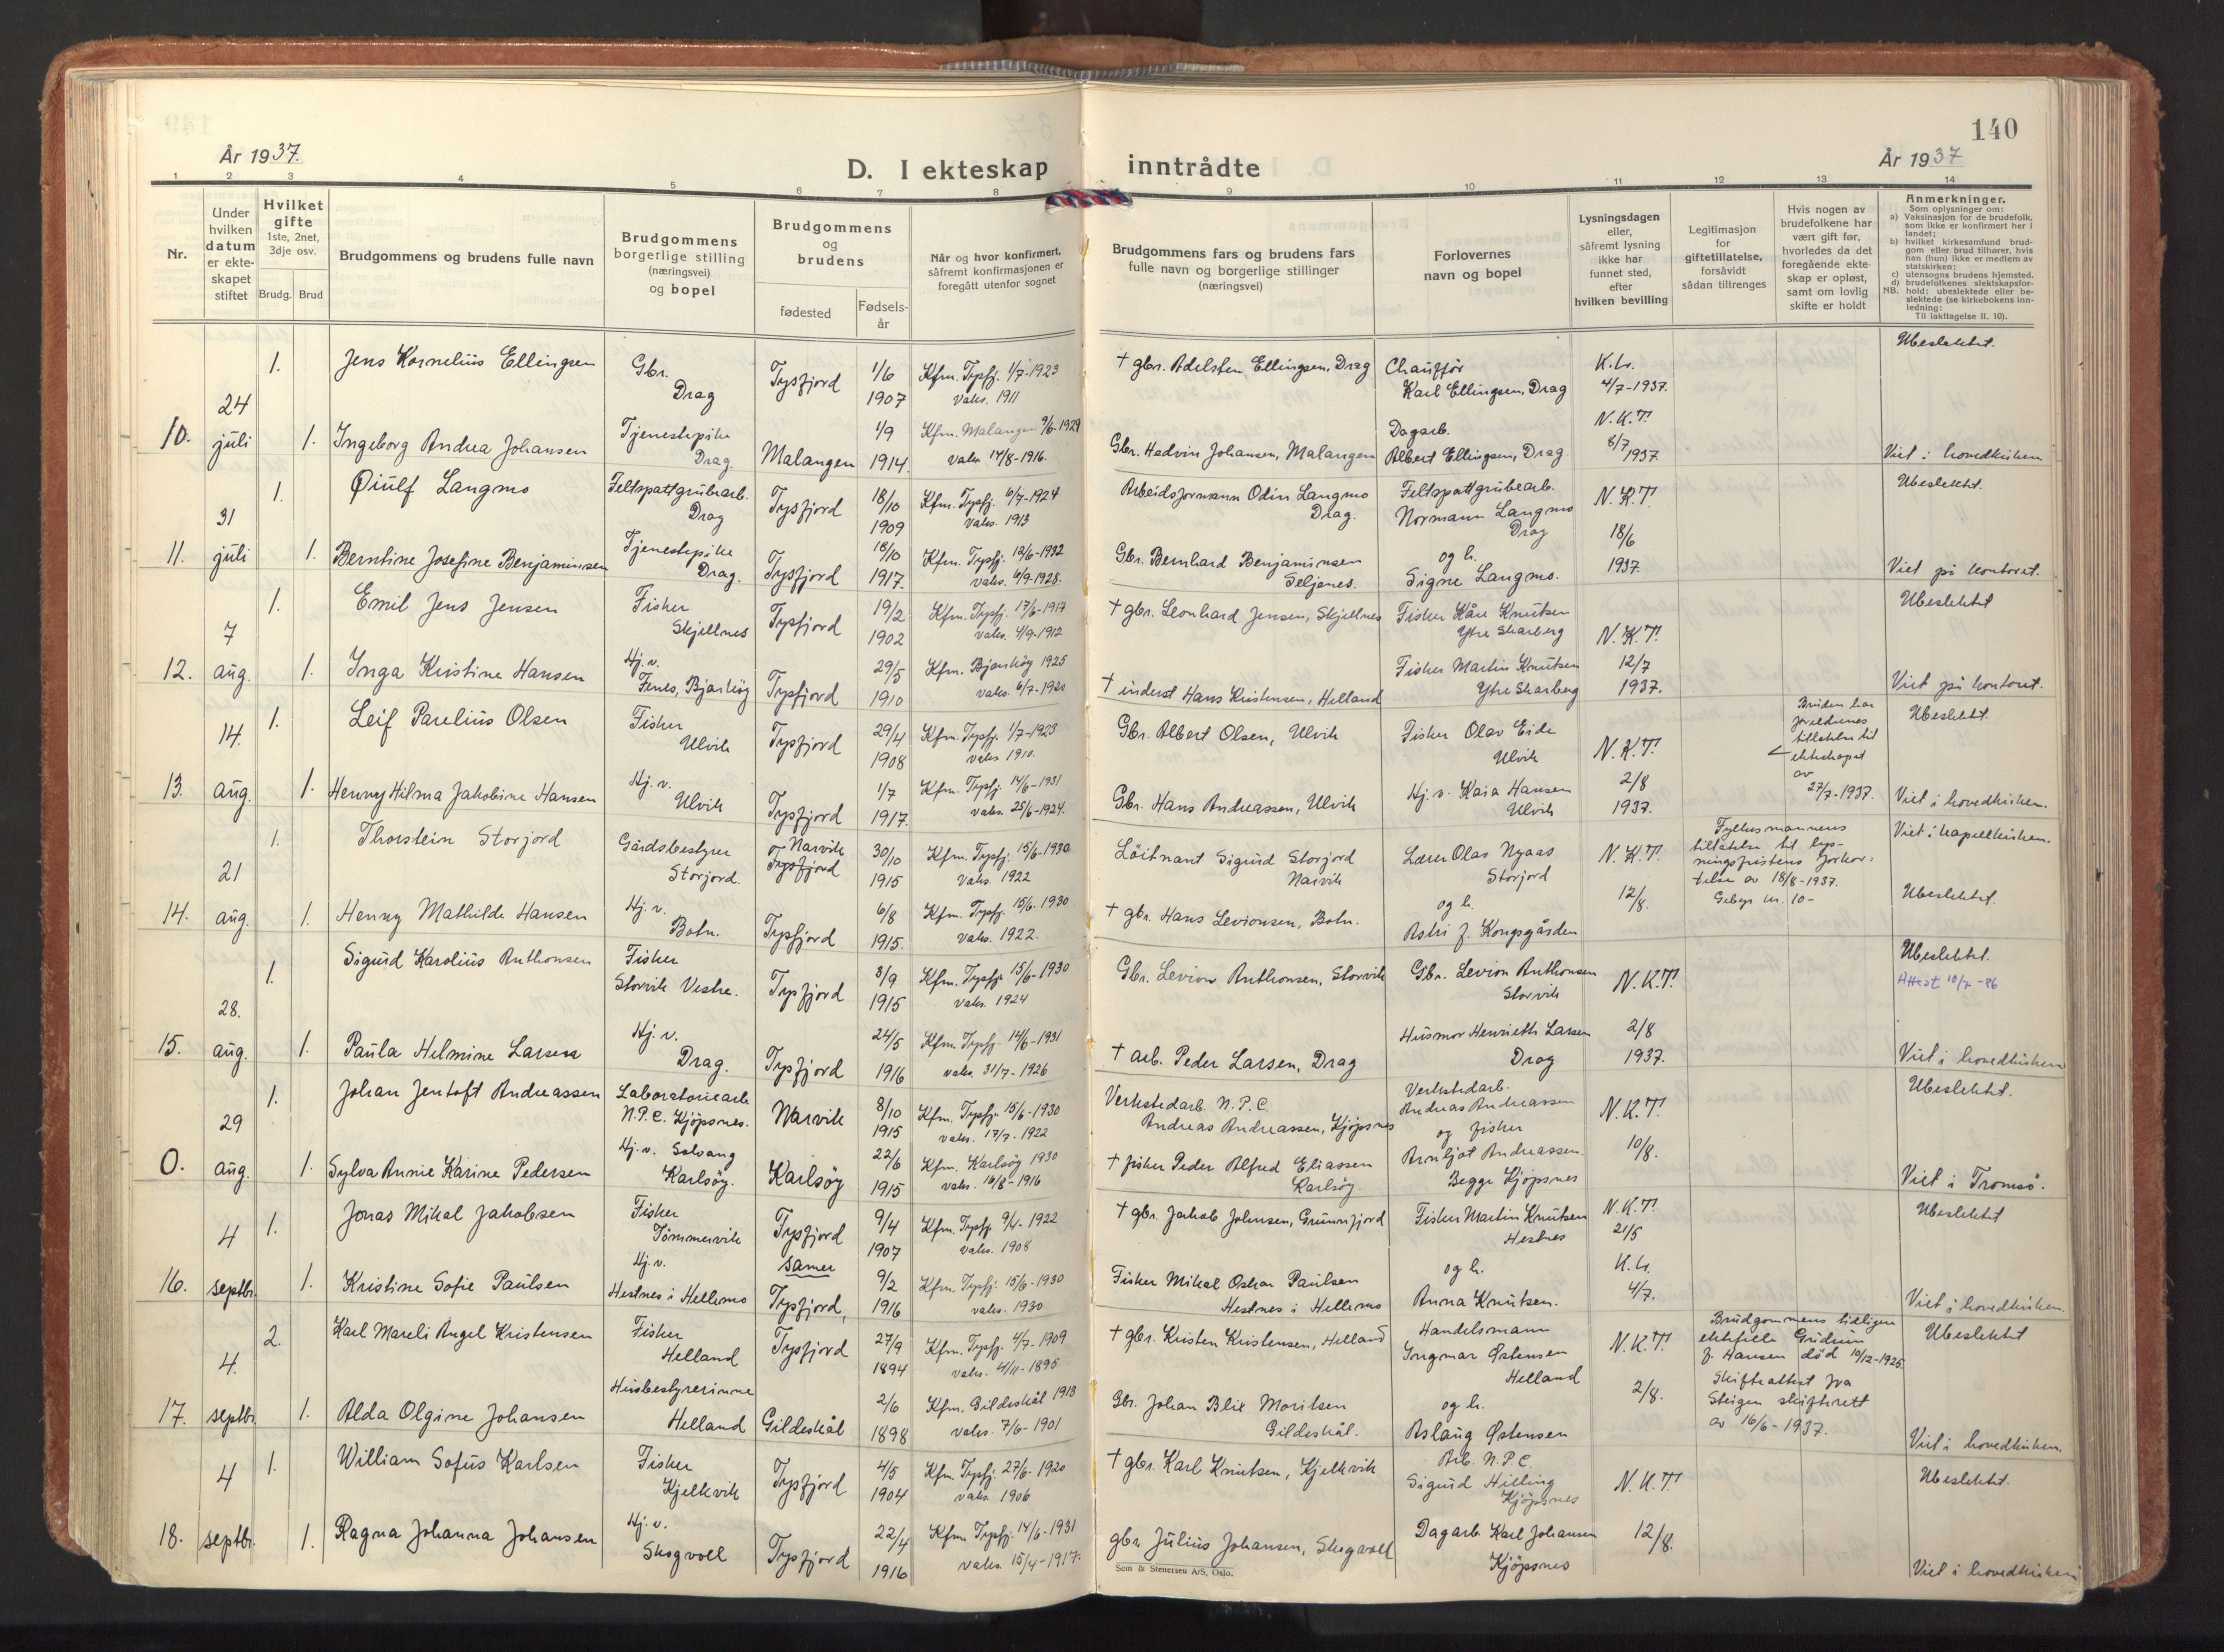 140
År 1937.
D. I ekteskap inntrådte
År 1937
1 2 3 4 5 6 7 8 9 10 11 12 13 14
Nr.
Under hvilken datum er ekteskapet stiftet
Hvilket gifte
1ste, 2net, 3dje osv.
Brudg. Brud
Brudgommens og brudens fulle navn
Brudgommens borgerlige stilling (næringsvei) og bopel
Brudgommens og brudens
fødested
Fødsels-år
Når og hvor konfirmert, såfremt konfirmasjonen er foregått utenfor sognet
Brudgommens fars og brudens fars fulle navn og borgerlige stillinger (næringsvei)
Forlovernes navn og bopel
Lysningsdagen eller, såfremt lysning ikke har funnet sted, efter hvilken bevilling
Legitimasjon for giftetillatelse, forsåvidt sådan tiltrenges
Hvis nogen av brudefolkene har vært gift før, hvorledes da det foregående ekteskap er opløst, samt om lovlig skifte er holdt
Anmerkninger.
Som oplysninger om:
a) Vaksinasjon for de brudefolk, som ikke er konfirmert her i landet;
b) hvilket kirkesamfund brudgom eller brud tilhører, hvis han (hun) ikke er medlem av statskirken;
c) utensogns brudens hjemsted.
d) brudefolkenes slektskapsforhold: ubeslektede eller beslektede (se kirkebokens innledning:
NB.
Til iakttagelse II. 10).
10. 24 juli
1. Jens Kornelius Ellingsen Gbr. Drag Tysfjord 1/6 1907 Kfm. Tysfj. 1/7-1923 vaks. 1911 † gbr. Adelsten Ellingsen, Drag Chauffør Karl Ellingsen, Drag K.L. 4/7-1937. Ubeslektet.
1. Ingeborg Andrea Johansen Tjenestepike Drag. Malangen 1/9 1914. Kfm. Malangen 9/6-1929 vaks 14/8-1916. Gbr. Hedvin Johansen, Malangen Dagarb. Albert Ellingsen, Drag N.K.T. 8/7 1937. Viet i hovedkirken
11. 31 juli
1. Øiulf Langmo Feltspattgrubearb. Drag Tysfjord 18/10 1909 Kfm. Tysfj. 6/7-1924 vaks. 1913 Arbeidsformann Odin Langmo Drag. Feltspattgrubearb. Normann Langmo Drag N.K.T. 18/6 1937. Ubeslektet.
1. Berntine Josefine Benjaminsen Tjenestepike Drag. Tysfjord 18/10 1917. Kfm. Tysfj. 12/6-1932 vaks. 6/9-1928. Gbr. Bernhard Benjaminsen Seljenes. og h. Signe Langmo. Viet på kontoret.
12. 7 aug.
1. Emil Jens Jensen Fisker Skjellnes Tysfjord 19/2 1902 Kfm. Tysfj. 17/6-1917 vaks. 4/9-1912 † gbr. Leonhard Jensen, Skjellnes Fisker Kåre Knutsen Ytre Skarberg N.K.T. 12/7 1937. Ubeslektet
1. Inga Kristine Hansen Hj.v. Fenes, Bjarköy Tysfjord 29/5 1910 Kfm. Bjarköy 1925 vaks. 6/7-1920 † inderst Hans Kristensen, Helland Fisker Martin Knutsen Ytre Skarberg Viet på kontoret.
13. 14. aug.
1. Leif Parelius Olsen Fisker Ulvik Tysfjord 29/4 1908 Kfm. Tysfj. 1/7-1923 vaks 1910. Gbr. Albert Olsen, Ulvik Fisker Olav Eide Ulvik N.K.T. 2/8 1937. Bruden har foreldrenes tillatelse til ekteskapet av 27/7-1937. Ubeslektet.
1. Henny Hilma Jakobine Hansen Hj.v. Ulvik Tysfjord 1/7 1917. Kfm. Tysfj. 14/6-1931 vaks. 25/6-1924. Gbr. Hans Andreassen, Ulvik Hj.v. Kaia Hansen Ulvik Viet i hovedkirken.
14. 21 aug.
1. Thorstein Storjord Gårdsbestyrer Storjord. Narvik Tysfjord 30/10 1915 Kfm. Tysfj. 15/6-1930 vaks. 1922 Löitnant Sigurd Storjord Narvik Lærer Olav Nyaas Storjord N.K.T. 12/8. Fylkesmannens tillatelse til lysningsfristens forkortelse av 18/8-1937. Gebyr kr. 10- Viet i kapellkirken.
1. Henny Mathilde Hansen Hj.v. Botn. Tysfjord 6/8 1915. Kfm. Tysfj. 15/6-1930 vaks. 1922. † gbr. Hans Levionsen, Botn. og h. Astri f. Kongsgården Ubeslektet.
15. 28. aug.
1. Sigurd Karolius Anthonsen Fisker Storvik Vestre. Tysfjord 3/9 1915 Kfm. Tysfj. 15/6-1930 vaks. 1924 Gbr. Levion Anthonsen, Storvik Gbr. Levion Anthonsen Storvik N.K.T. 2/8 1937. Ubeslektet. Attest 10/7-86
1. Paula Helmine Larsen Hj.v. Drag. Tysfjord 24/5 1916 Kfm. Tysfj. 14/6-1931 vaks. 31/7-1926 † arb. Peder Larsen, Drag Husmor Henrieth Larsen Drag Viet i hovedkirken
0. 29 aug.
1. Johan Jentoft Andreassen Laboratoriearb. N.P.C. Kjöpsnes. Narvik 8/10 1915 Kfm. Tysfj. 15/6-1930 vaks. 17/7-1922 Verkstedarb. N.P.C. Andreas Andreassen, Kjöpsnes Verkstedarb. Andreas Andreassen og fisker N.K.T. 10/8. Ubeslektet.
1. Sylva Annie Karine Pedersen Hj.v. Solvang Karlsöy. Karlsöy 22/6 1915 Kfm. Karlsöy 1930 vaks. 16/8-1916 † fisker Peder Alfred Eliassen Karlsöy. Arnljot Andreassen. Begge Kjöpsnes Viet i Tromsö.
16. 4 septbr.
1. Jonas Mikal Jakobsen Fisker Tömmervik Tysfjord 9/4 1907 Kfm. Tysfj. 9/4-1922 vaks. 1908 † gbr. Jakob Johnsen, Grunnfjord Fisker Martin Knutsen Hestnes N.K.T. 21/5 Ubeslektet
samer
1. Kristine Sofie Paulsen Hj.v. Hestnes i Hellemo Tysfjord, 9/2 1916 Kfm. Tysfj. 15/6-1930 vaks. 1930 Fisker Mikal Oskar Paulsen Hestnes i Hellemo og h. Anna Knutsen. K.L. 4/7. Viet i hovedkirken.
17. 4. septbr.
2. Karl Mareli Angel Kristensen Fisker Helland Tysfjord 27/9 1894 Kfm. Tysfj. 4/7-1909 vaks. 4/11-1895 † gbr. Kristen Kristensen, Helland Handelsmann Ingmar Østensen Helland N.K.T. 2/8. Brudgommens tidligere ektefelle f. Hansen död 10/12-1925. Skifteattest fra Steigen skifterett av 16/6-1937. Ubeslektet
1. Alda Olgine Johansen Husbestyrerinne Helland Gildeskål 2/6 1898 Kfm. Gildeskål 1913 vaks. 7/6-1901 Gbr. Johan Blix Moritsen Gildeskål. og h. Aslaug Østensen Viet i hovedkirken.
18. 4 septbr.
1. William Sofus Karlsen Fisker Kjelkvik Tysfjord 4/5 1904 Kfm. Tysfj. 27/6-1920 vaks. 1906 † gbr. Karl Knutsen, Kjelkvik Arb. N.P.C. Sigurd Hilling Kjöpsnes N.K.T. 12/8. Ubeslektet.
1. Ragna Johanna Johansen Hj.v. Skogvoll Tysfjord 22/4 1916 Kfm. Tysfj. 14/6-1931 vaks. 15/4-1917. gbr Julius Johansen, Skogvoll Dagarb. Karl Johansen Kjöpsnes Viet i hovedkirken
Sem & Stenersen A/S, Oslo.